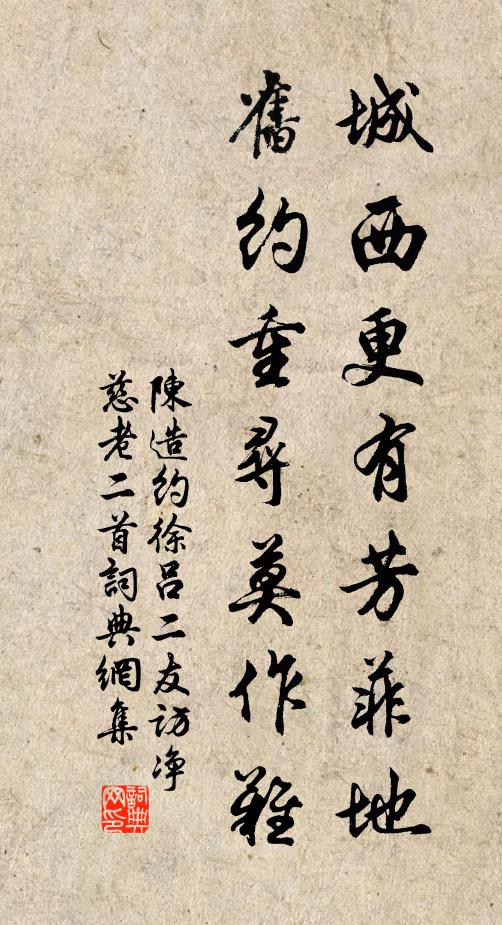 城西更有芳菲地
舊約重尋莫作難
陳造約徐呂二友訪淨
慈老二首詞典網集
詞典网印